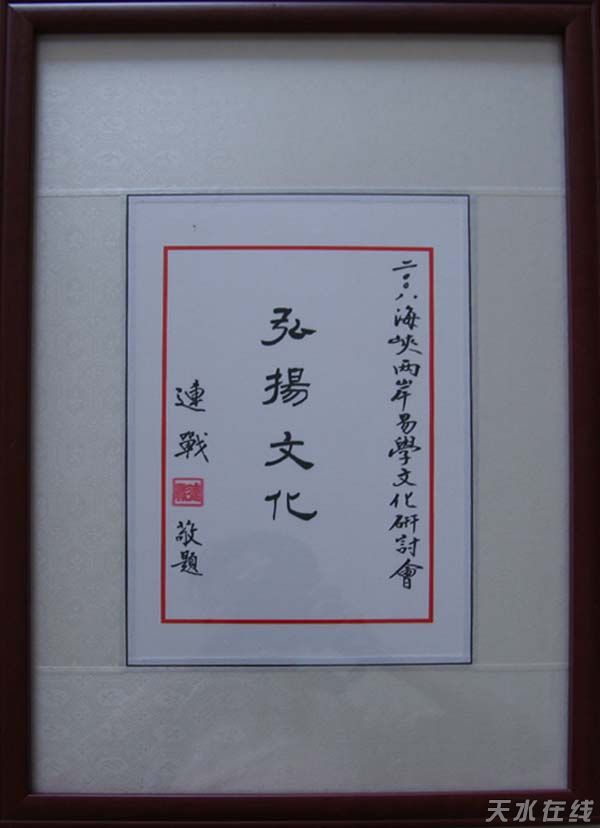 二〇〇八海峽兩岸易學文化研討會
弘揚文化
連戰
敬題
天水在线